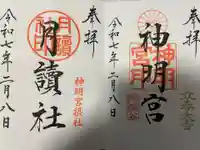 奉拝
神明宮
令和七年二月八日
奉拝
月讀社
神明宮摂社
令和七年二月八日